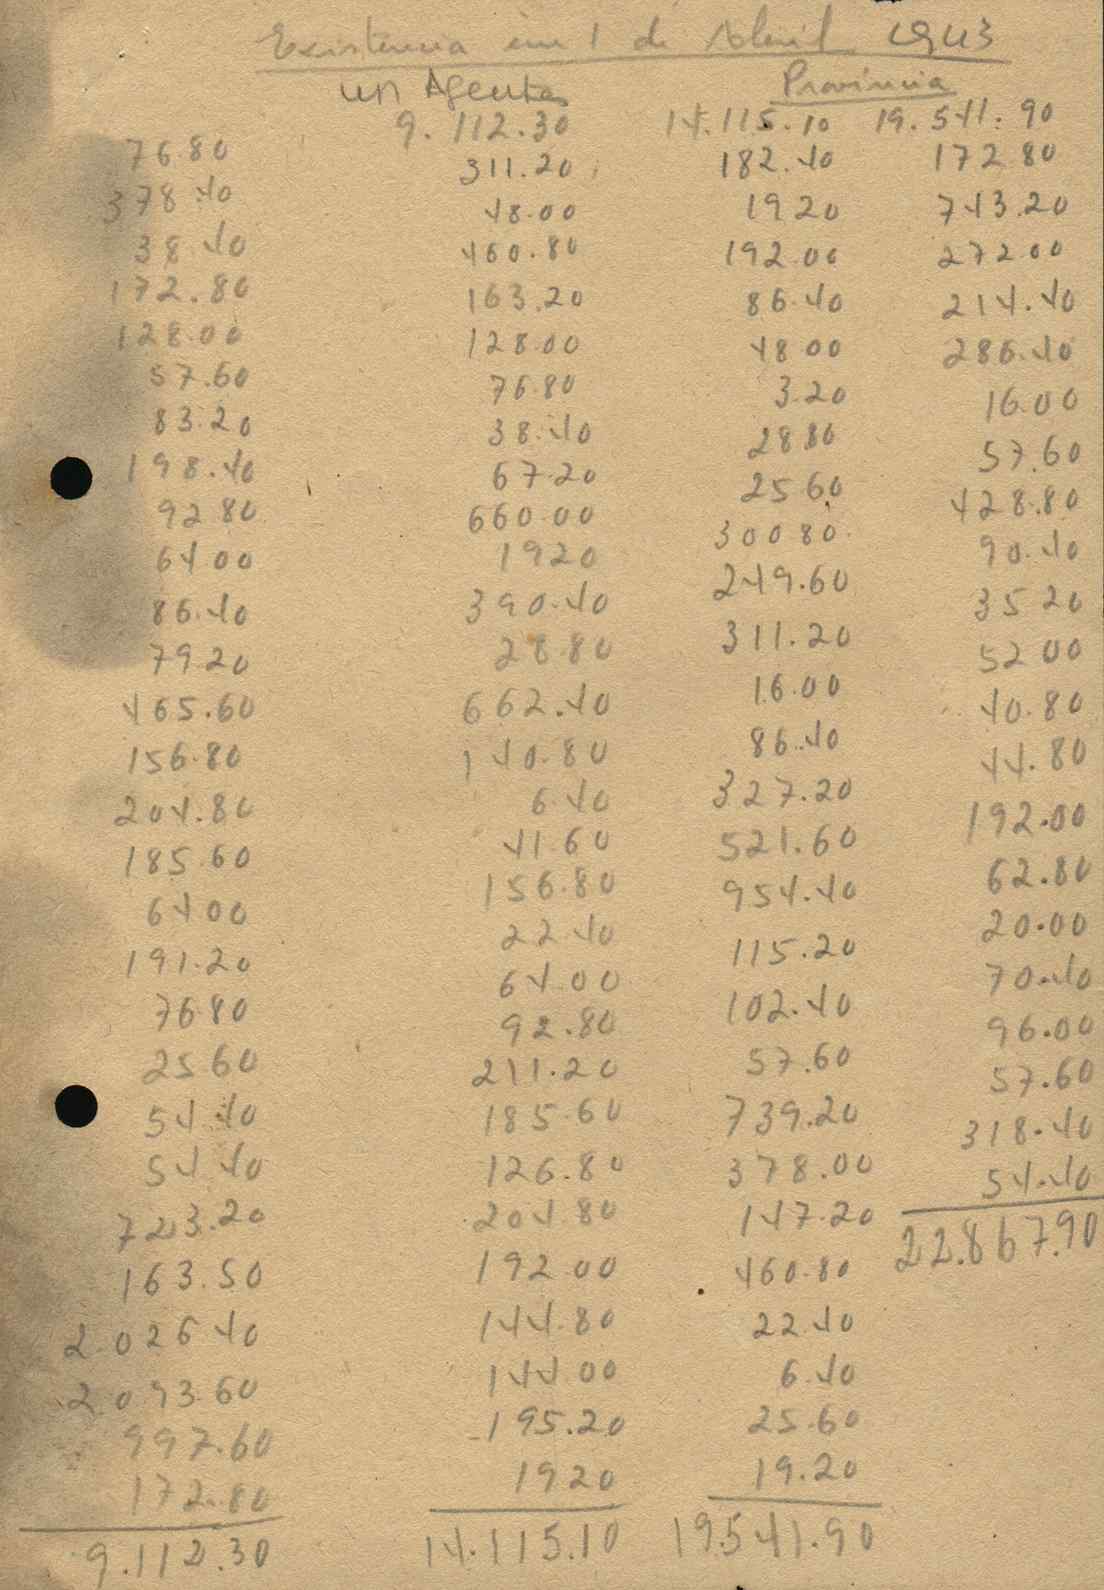 Existência em 1 de Abril 1943
em Agentes
Província
76.80
378.40
38.40
172.80
128.00
57.60
83.20
198.40
92 80
64 00
86.40
79.20
465.60
156.80
204.80
185.60
64 00
191.20
76 80
25 60
54.40
54 40
723.20
163.50
2.026 40
2.093.60
997.60
172.80
9.112.30
9.112.30
311.20
48.00
460.80
163.20
128.00
76.80
38.40
67.20
660.00
19 20
390.40
28.80
662.40
140.80
6.40
41 60
156.80
22 40
64.00
92.80
211.20
185.60
126.80
204.80
192 00
144.80
144 00
195.20
19 20
14.115.10
14.115.10
182.40
19 20
192.00
86.40
48 00
3.20
28 80
25 60
300 80
249.60
311.20
16.00
86.40
327.20
521.60
954.40
115.20
102.40
57.60
739.20
378.00
147.20
460.80
22.40
6.40
25.60
19.20
19.541.90
19.541.90
172 80
743.20
272 00
214.40
286.40
16.00
57.60
428.80
90.40
35 20
52 00
40.80
44.80
192.00
62.80
20.00
70.40
96.00
57.60
318.40
54.40
22.867.90